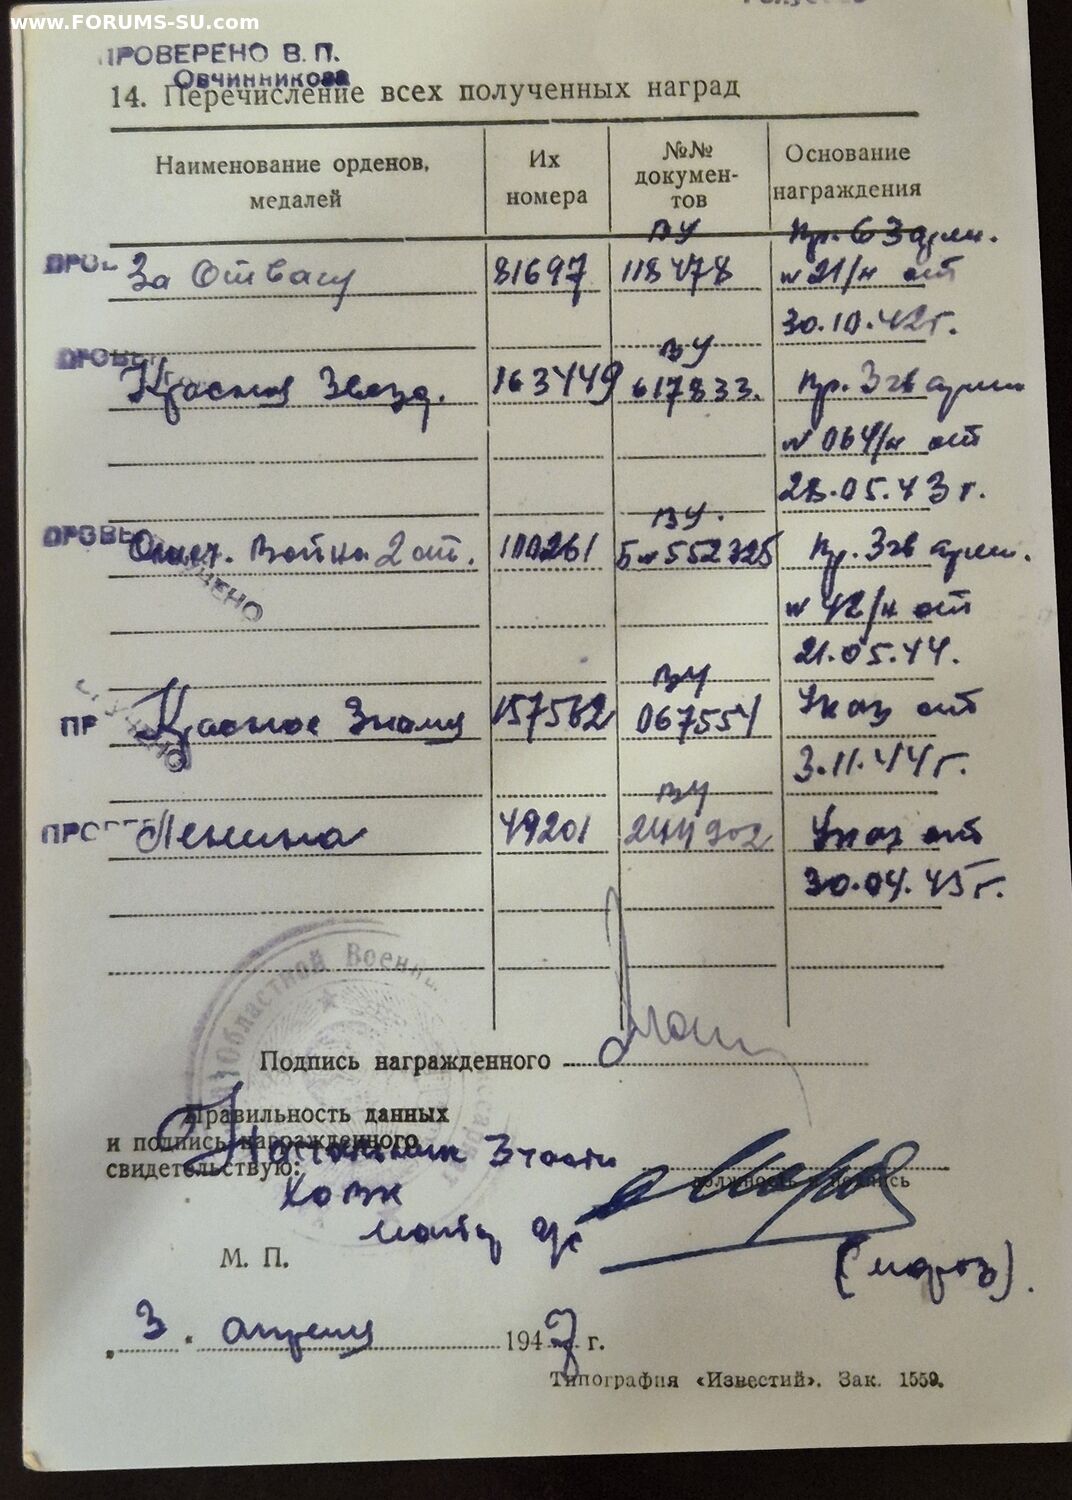 www.FORUMS-SU.com
ПРОВЕРЕНО В. П.
Овчинникова
14. Перечисление всех полученных наград
Наименование орденов, медалей
Их номера
№№ докумен-тов
Основание награждения
За Отвагу 81697 ВУ 118478 Пр. 63 арм. №21/н от 30.10.42г.
Красная Звезд. 163449 ВУ 617833. Пр. 3 гв армии №064/н от 28.05.43г.
Отеч. Война 2 ст. 100261 ВУ. Б №552325 Пр. 3 гв арм. №42/н от 21.05.44.
Красное Знамя 157562 ВУ 067554 Указ от 3.11.44г.
Ленина 49201 ВУ 244902 Указ от 30.04.45г.
Областной Военн
Подпись награжденного
Правильность данных
и подпись награжденного
свидетельствую:
Начальник 3 части
должность и подпись
ХОВК
М. П.
(Мороз).
3. апреля 1947 г.
Типография «Известий». Зак. 1559.